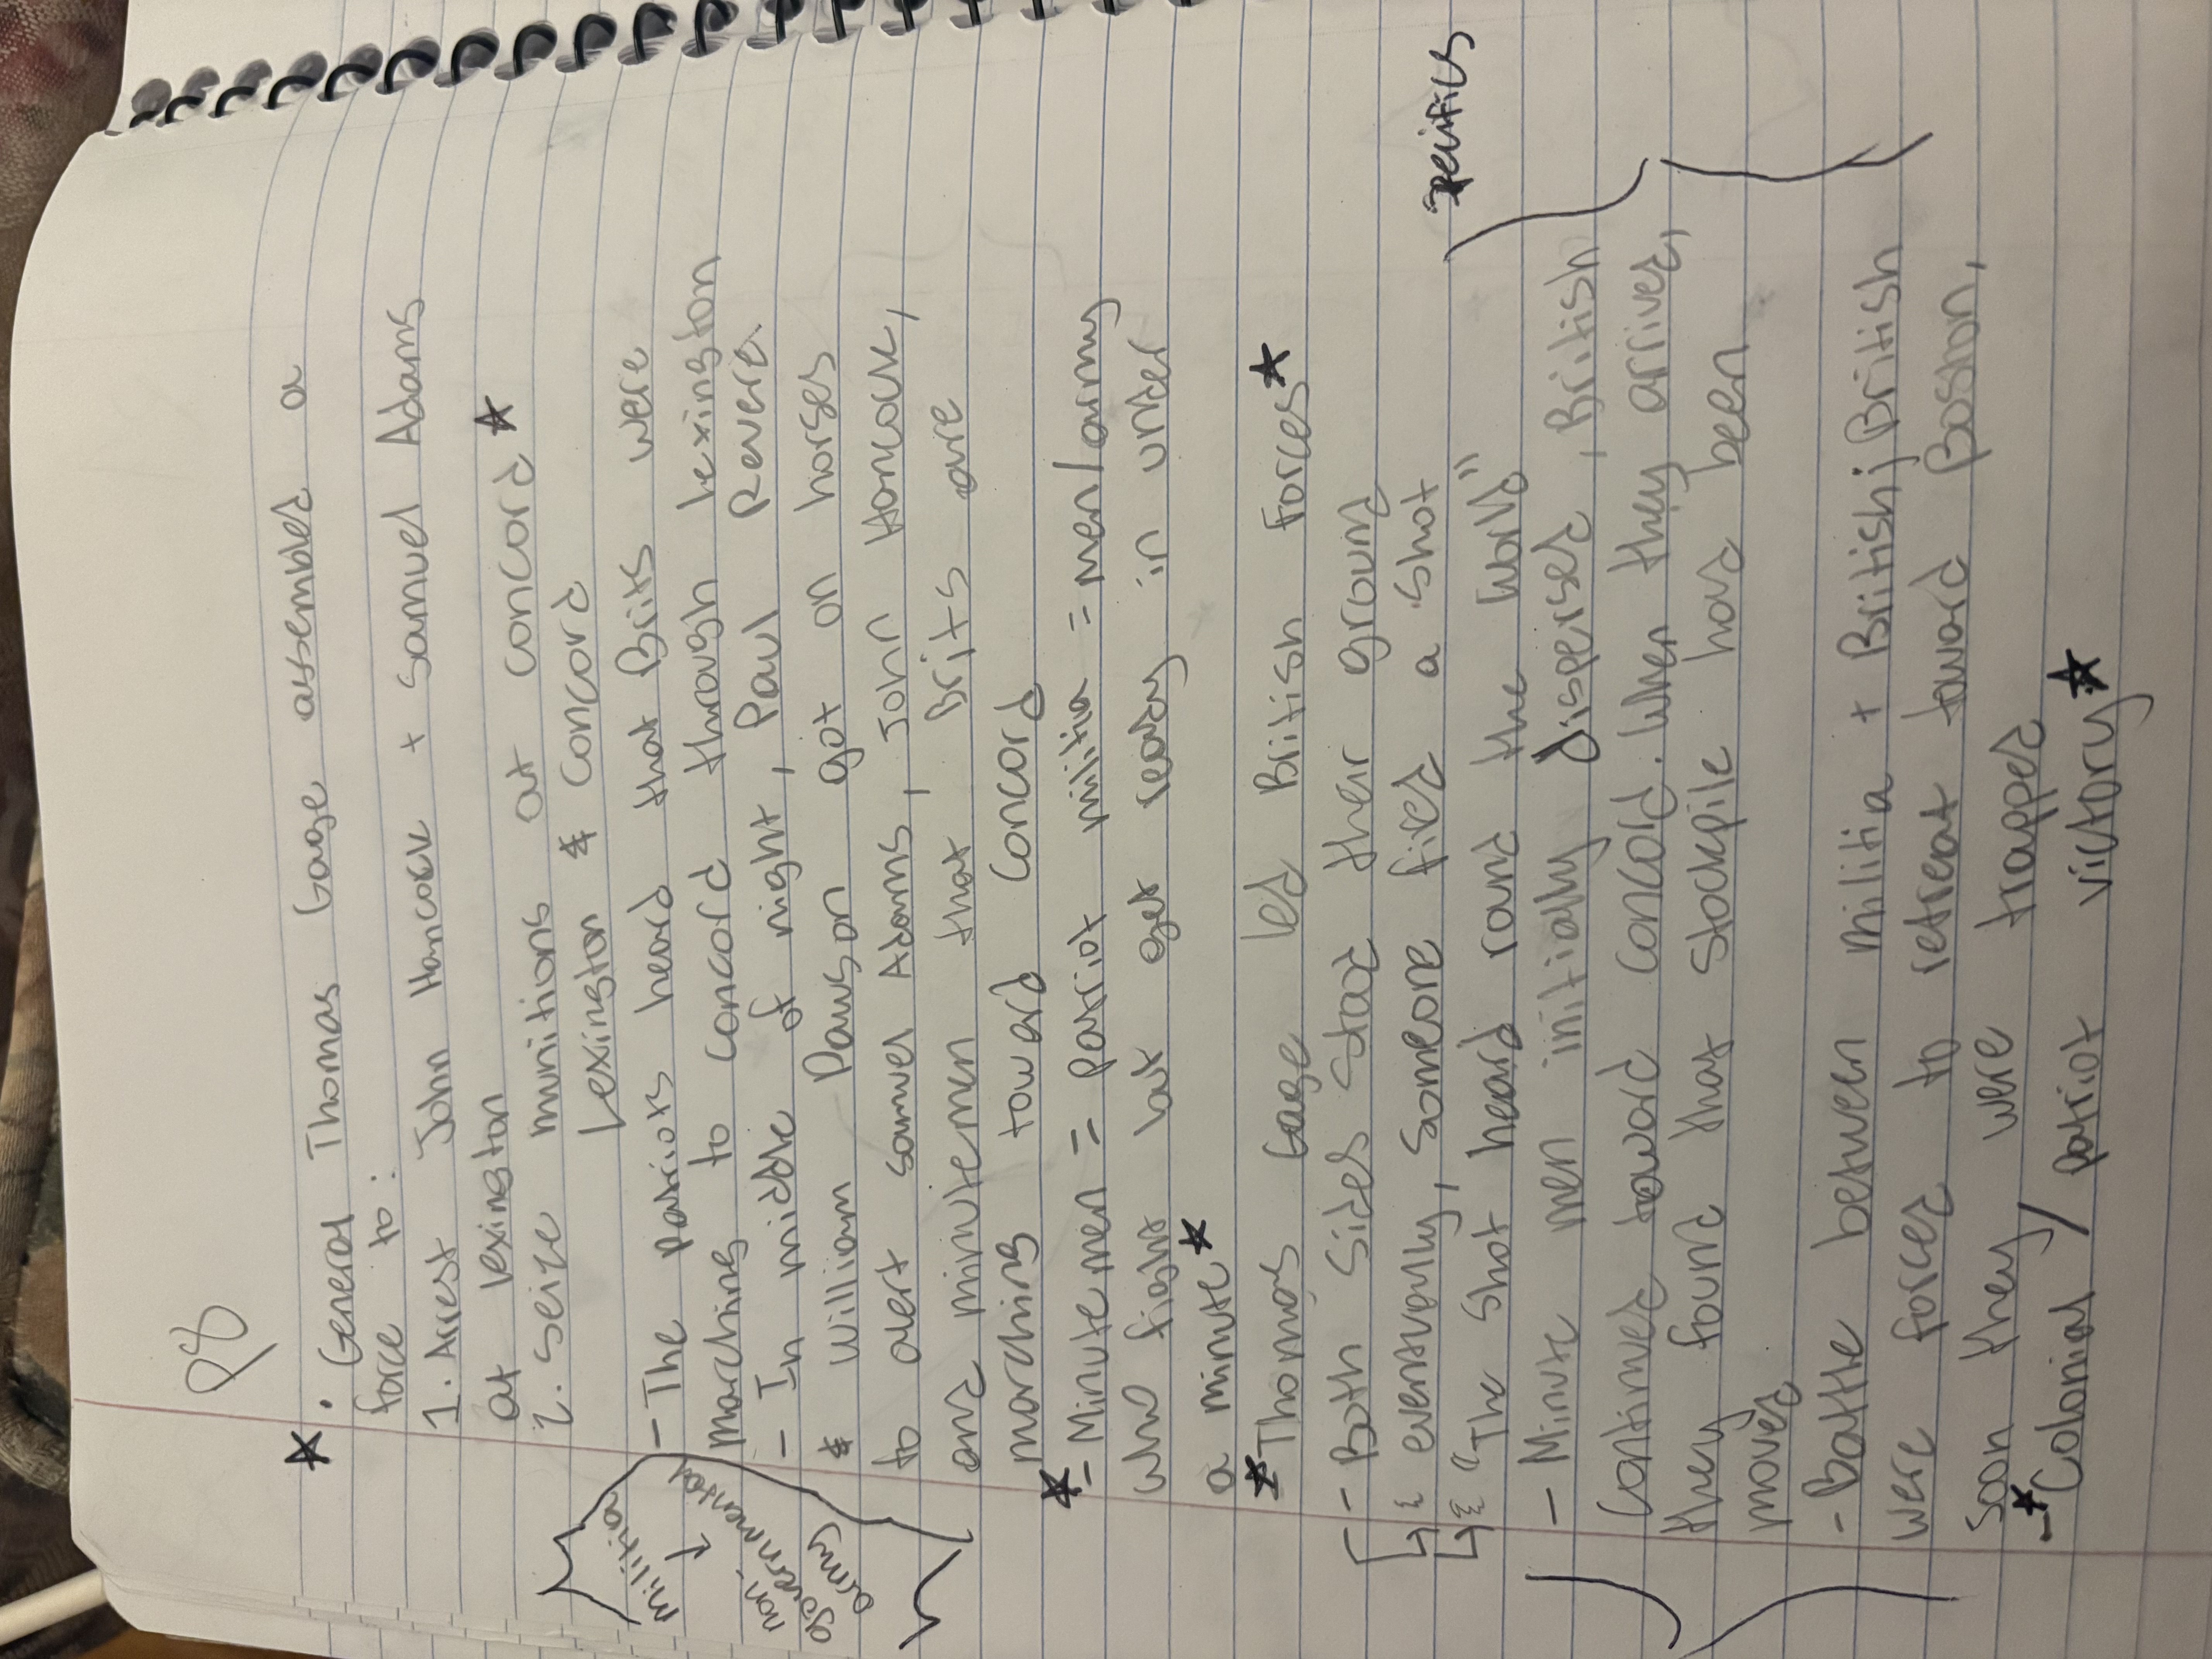 98
★ · General Thomas Gage assembled a
force to:
1. Arrest John Hancock + Samuel Adams
at lexington
2. seize munitions at concord ★
Lexington & Concord
- The patriots heard that Brits were
marching to concord through lexington
- In middle of night, Paul Revere
& William Dawson got on horses
to alert samuel Adams, John Hancock,
and minutemen that Brits are
marching toward Concord
★- Minute men = patriot militia = men/army
who fight but get ready in under
a minute ★
★ Thomas Gage led British forces ★
- Both sides stood their ground
↳ eventually, someone fired a shot
↳ "The shot heard round the world"
- Minute men initially dispersed, British
continued toward concord. When they arrived,
they found that stockpile had been
moved
- Battle between militia + British; British
were forced to retreat toward Boston,
soon they were trapped
-★ Colonial / patriot victory ★
militia
↓
non-
governmental
army
specifics